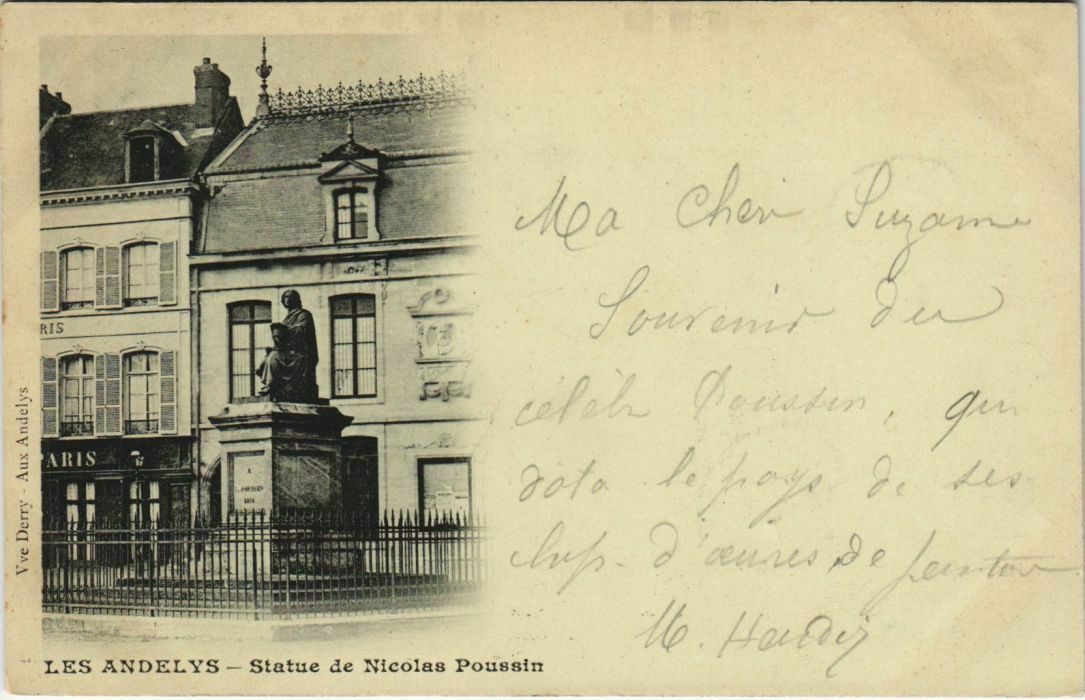 Ma Cher Suzanne
Souvenir du
célèb Poussin, qui
dota le pays de ses
d'œuvres, de
M.
RIS
PARIS
A
POUSSIN
1851
Vve Derry - Aux Andelys
LES ANDELYS — Statue de Nicolas Poussin